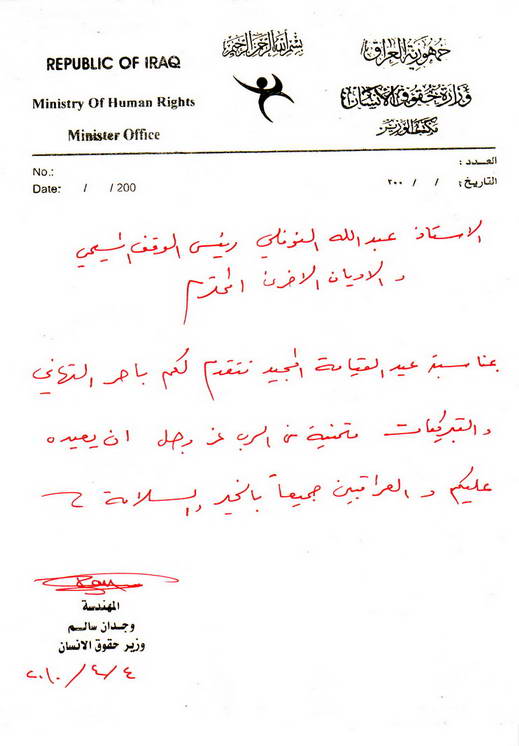 بسم الله الرحمن الرحيم
REPUBLIC OF IRAQ
جمهورية العراق
Ministry Of Human Rights
وزارة حقوق الانسان
Minister Office
مكتب الوزير
No.:
العـدد :
Date: / / 200
التاريخ : / / ٢٠٠
الاستاذ عبدالله النوفلي رئيس الوقف المسيحي
و الاديان الاخرى المحترم
بمناسبة عيد القيامة المجيد نتقدم لكم باحر التهاني
والتبريكات متمنية من الرب عز وجل ان يعيده
عليكم و العراقيين جميعاً بالخير والسلامة
المهندسة
وجدان سالـم
وزير حقوق الانسان
٢٠١٠/٤/٤